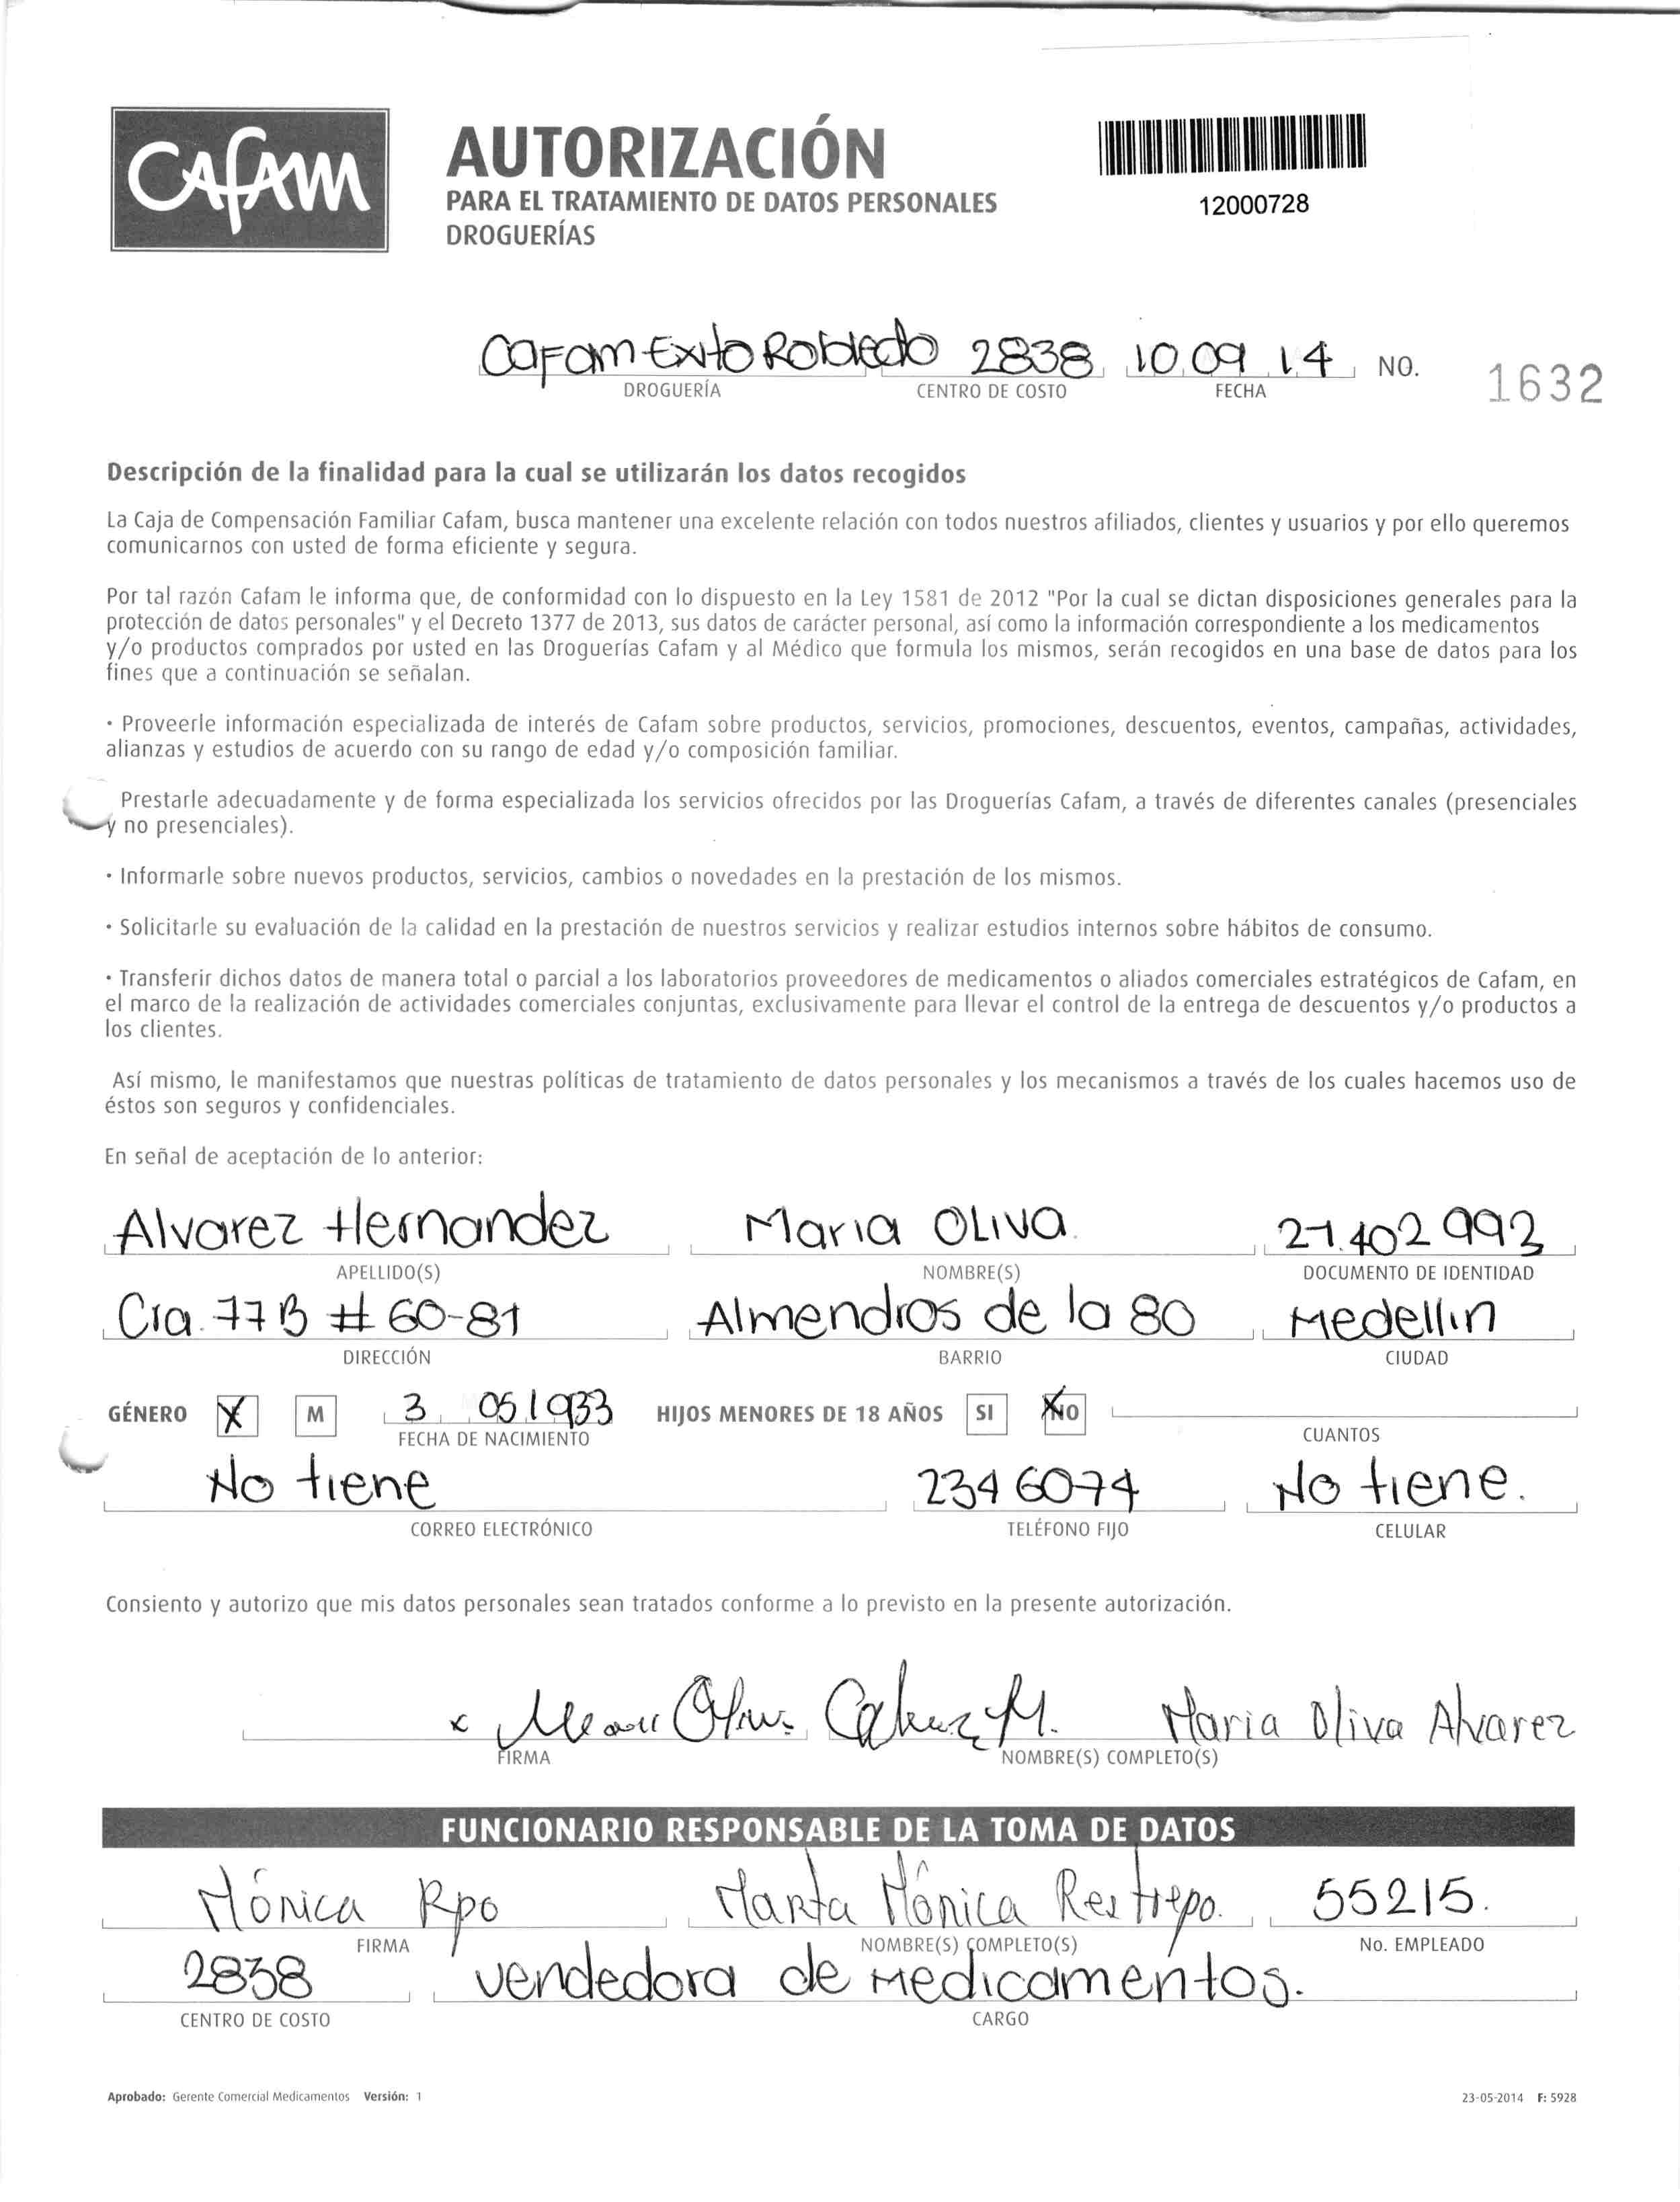 CAFAM
AUTORIZACIÓN
PARA EL TRATAMIENTO DE DATOS PERSONALES
DROGUERÍAS
12000728
Cafam Exito Robledo 2838 10 09 14 NO. 1632
DROGUERÍA CENTRO DE COSTO FECHA
Descripción de la finalidad para la cual se utilizarán los datos recogidos
La Caja de Compensación Familiar Cafam, busca mantener una excelente relación con todos nuestros afiliados, clientes y usuarios y por ello queremos
comunicarnos con usted de forma eficiente y segura.
Por tal razón Cafam le informa que, de conformidad con lo dispuesto en la Ley 1581 de 2012 "Por la cual se dictan disposiciones generales para la
protección de datos personales" y el Decreto 1377 de 2013, sus datos de carácter personal, así como la información correspondiente a los medicamentos
y/o productos comprados por usted en las Droguerías Cafam y al Médico que formula los mismos, serán recogidos en una base de datos para los
fines que a continuación se señalan.
· Proveerle información especializada de interés de Cafam sobre productos, servicios, promociones, descuentos, eventos, campañas, actividades,
alianzas y estudios de acuerdo con su rango de edad y/o composición familiar.
Prestarle adecuadamente y de forma especializada los servicios ofrecidos por las Droguerías Cafam, a través de diferentes canales (presenciales
y no presenciales).
· Informarle sobre nuevos productos, servicios, cambios o novedades en la prestación de los mismos.
· Solicitarle su evaluación de la calidad en la prestación de nuestros servicios y realizar estudios internos sobre hábitos de consumo.
· Transferir dichos datos de manera total o parcial a los laboratorios proveedores de medicamentos o aliados comerciales estratégicos de Cafam, en
el marco de la realización de actividades comerciales conjuntas, exclusivamente para llevar el control de la entrega de descuentos y/o productos a
los clientes.
Así mismo, le manifestamos que nuestras políticas de tratamiento de datos personales y los mecanismos a través de los cuales hacemos uso de
éstos son seguros y confidenciales.
En señal de aceptación de lo anterior:
Alvarez Hernandez Maria Oliva 21.402 992
APELLIDO(S) NOMBRE(S) DOCUMENTO DE IDENTIDAD
Cra. 77 B # 60-81 Almendros de la 80 Medellin
DIRECCIÓN BARRIO CIUDAD
GÉNERO X M 3 05 1933 HIJOS MENORES DE 18 AÑOS SI NO
FECHA DE NACIMIENTO CUANTOS
No tiene 234 6074 No tiene.
CORREO ELECTRÓNICO TELÉFONO FIJO CELULAR
Consiento y autorizo que mis datos personales sean tratados conforme a lo previsto en la presente autorización.
x Maria Oliva Alvarez
FIRMA NOMBRE(S) COMPLETO(S)
FUNCIONARIO RESPONSABLE DE LA TOMA DE DATOS
Mónica Rpo Marta Mónica Restrepo. 55215.
FIRMA NOMBRE(S) COMPLETO(S) No. EMPLEADO
2838 vendedora de medicamentos.
CENTRO DE COSTO CARGO
Aprobado: Gerente Comercial Medicamentos Versión: 1 23-05-2014 F: 5928